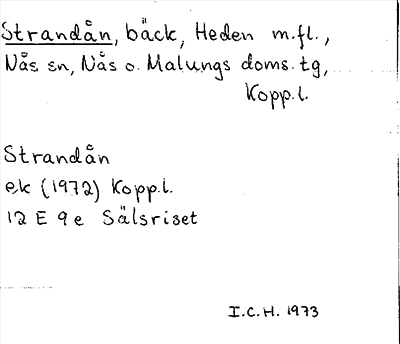 Strandån, bäck, Heden m.fl.,
Nås sn, Nås o. Malungs doms. tg,
Kopp.l.
Strandån
ek (1972) Kopp.l.
12 E 9e Sälsriset
I.C.H. 1973